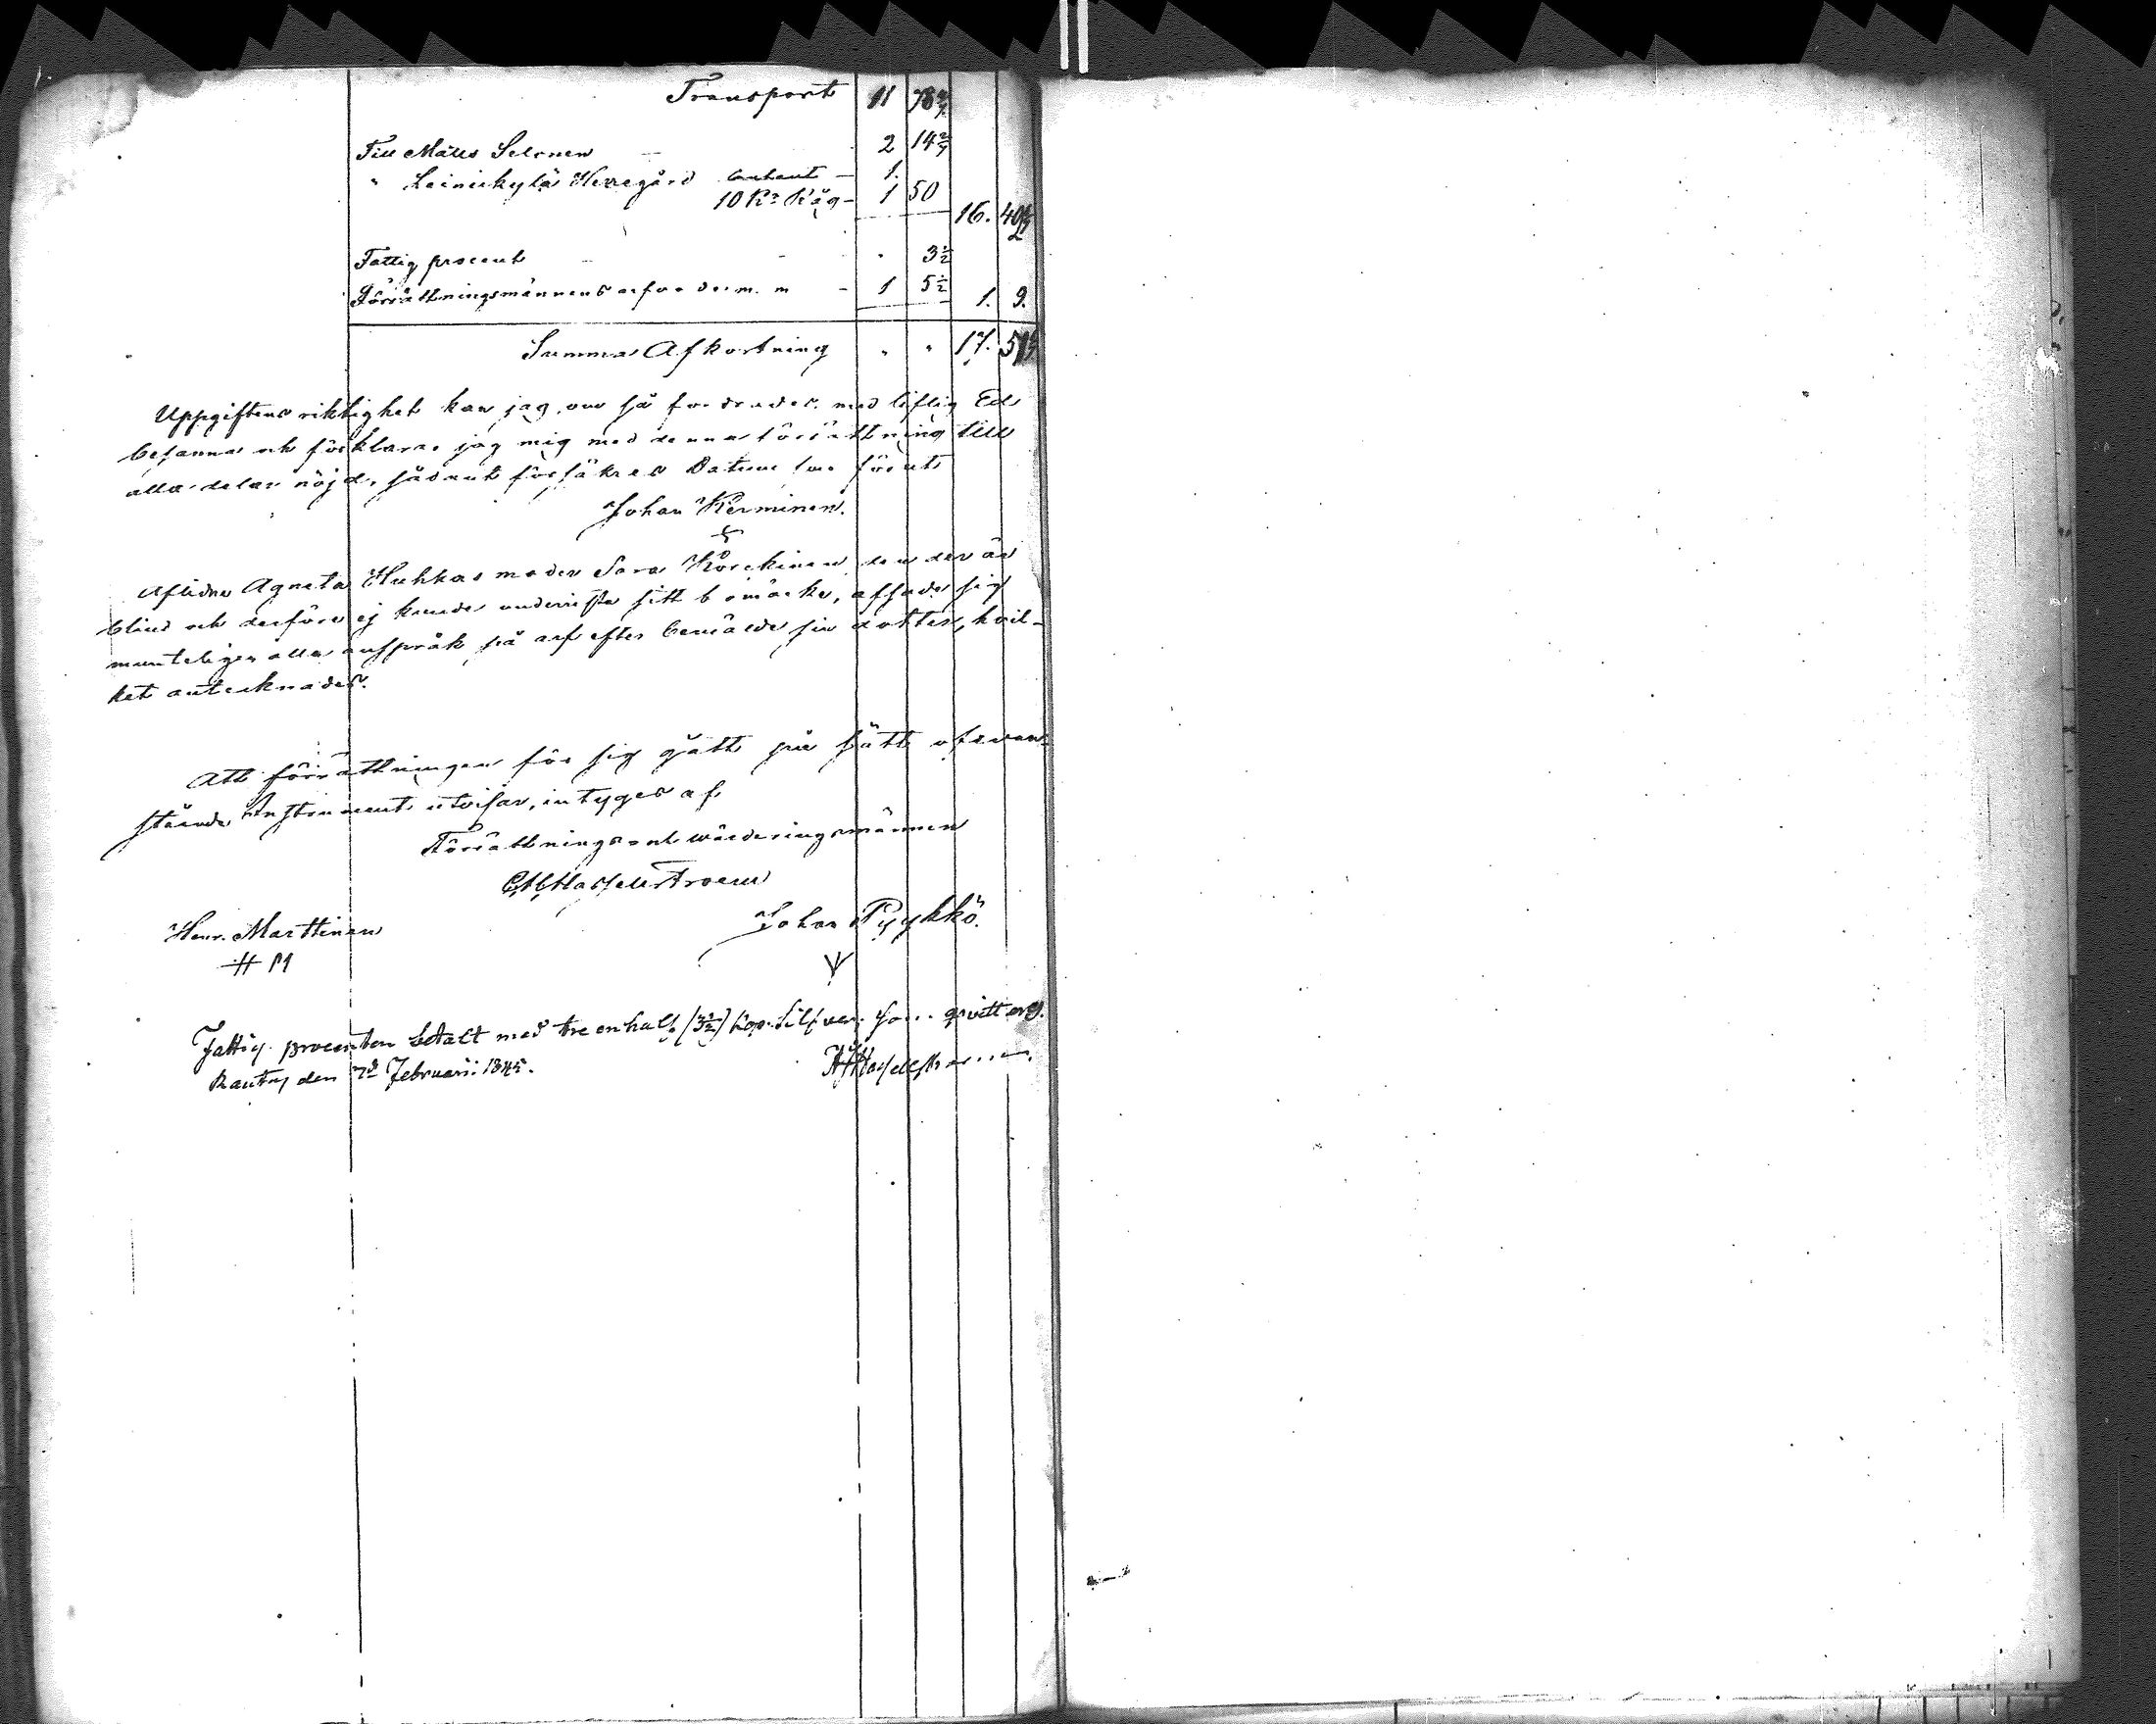 Transport 11 78 4/7
Till Matts Selonen — 2 14 2/7
" Leinikylä Herregård contant — 1.
10 Kr Råg — 1 50 16. 40 6/7
Fattig procent - - " 3½
Förrättningsmännens arfvode m. m - 1 5½ 1. 9.
Summa Afkortning " " 17.
Uppgiftens riktighet kan jag, om så fordrades, med liflig Ed
besanna och förklarar jag mig med denna förrättning till
alla delar nöjd, sådant försäkras Datum som förut
Johan Kerminen.
Aflidna Agneta Huhkas moder Sara den der är
blind och derföre ej kunde underrista sitt bomärke, afsade sig
munteligen alla anspråk på arf efter bemälde sin dotter, hvil-
ket antecknades.
Att förrättningen för sig gått på sätt ofvan-
stående Instrument utvisar, intygas af
Förrättnings och Wärderingsmännen
Hasselstroem
Henr. Marttinen Johan Pyykkö.
H M
Fattig procenten betalt med tre en half (3½) kop. Silfver, som qvitteras.
Rautus den 7d Februarii 1845. Hasselstroem.